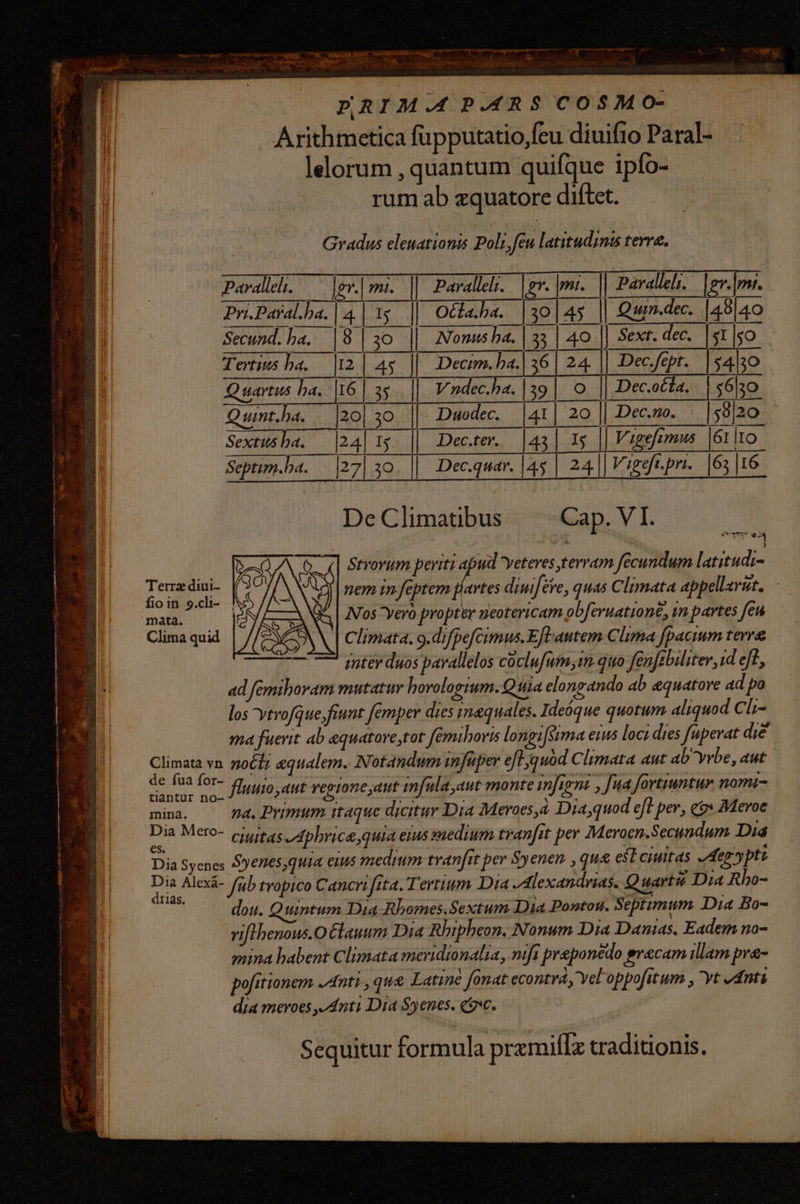 PRIMA PARS COSMO-
Arithmetica ſupputatio,ſeu diuiſio Paral-
lelorum , quantum quiſque ipſo-
rum ab æquatore diſtet.
Gradus eleuationis Poli,ſeu latitudinis terræ.
Paralleli. |gr.| mi. || Paralleli. |gr. |mi. || Paralleli. |gr.|mi.
Pri.Paral.ha. | 4 | 15 || Octa.ha. |30| 45 || Quin.dec. |48|40
Secund. ha. | 8 | 30 || Nonus ha. | 33 | 40 || Sext. dec. |51 |50
Tertius ha. |12 | 45 || Decim.ha.| 36 | 24 || Dec.ſept. |54|30
Quartus ha. |16 | 35 || Vndec.ha. |39 | 0 || Dec.octa. | 56|30
Quint.ha. |20| 30 || Duodec. |41 | 20 || Dec.no. |58|20
Sextus ha. |24| 15 || Dec.ter. |43 | 15 || Vigeſimus |61 |10
Septim.ha. |27| 30. || Dec.quar. |45 | 24 || Vigeſi.pri. |63 |16
De Climatibus Cap. VI.
Strorum periti apud veteres,terram ſecundum latitudi-
Terræ diui- nem in ſeptem partes diuiſere, quas Climata appellarũt.
ſio in 9.cli- Nos vero propter neotericam obſeruationẽ, in partes ſeu
mata.
Clima quid Climata. 9.diſpeſcimus.Eſt autem Clima ſpacium terræ
inter duos parallelos cõcluſum,in quo ſenſibiliter,id eſt,
ad ſemihoram mutatur horologium.Quia elongando ab æquatore ad po
los vtroſque,fiunt ſemper dies inæquales. Ideóque quotum aliquod Cli-
ma fuerit ab æquatore,tot ſemihoris longiſsima eius loci dies ſuperat diẽ
Climata vn nocti æqualem. Notandum inſuper eſt,quòd Climata aut ab vrbe, aut
de ſua for- fluuio,aut regione,aut inſula,aut monte inſigni , ſua ſortiuntur nomi-
tiantur no-
mina. na. Primum itaque dicitur Dia Meroes,à Dia,quod eſt per, & Meroe
Dia Mero- ciuitas Aphricæ,quia eius medium tranſit per Meroen.Secundum Dia
es.
Dia Syenes Syenes,quia eius medium tranſit per Syenen , quæ eſt ciuitas Aegypti
Dia Alexã- ſub tropico Cancri ſita. Tertium Dia Alexandrias. Quartũ Dia Rho-
drias.
dou. Quintum Dia Rhomes.Sextum Dia Pontou. Septimum Dia Bo-
riſthenous.Octauum Dia Rhipheon. Nonum Dia Danias. Eadem no-
mina habent Climata meridionalia, niſi præponẽdo græcam illam præ-
poſitionem Anti , quæ Latinè ſonat econtrà, vel oppoſitum , vt Anti
dia meroes,Anti Dia Syenes. &c.
Sequitur formula præmiſſæ traditionis.